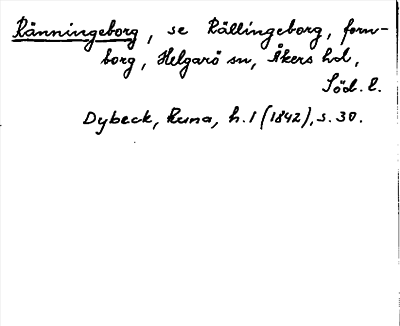 Ränningeborg, se Rällingeborg, forn-
borg, Helgarö sn, Åkers hd,
Söd. l.
Dybeck, Runa, h. 1 (1842), s. 30.